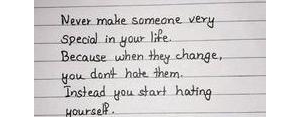 Never make someone very
special in your life.
Because when they change,
you dont hate them.
Instead you start hating
yourself.